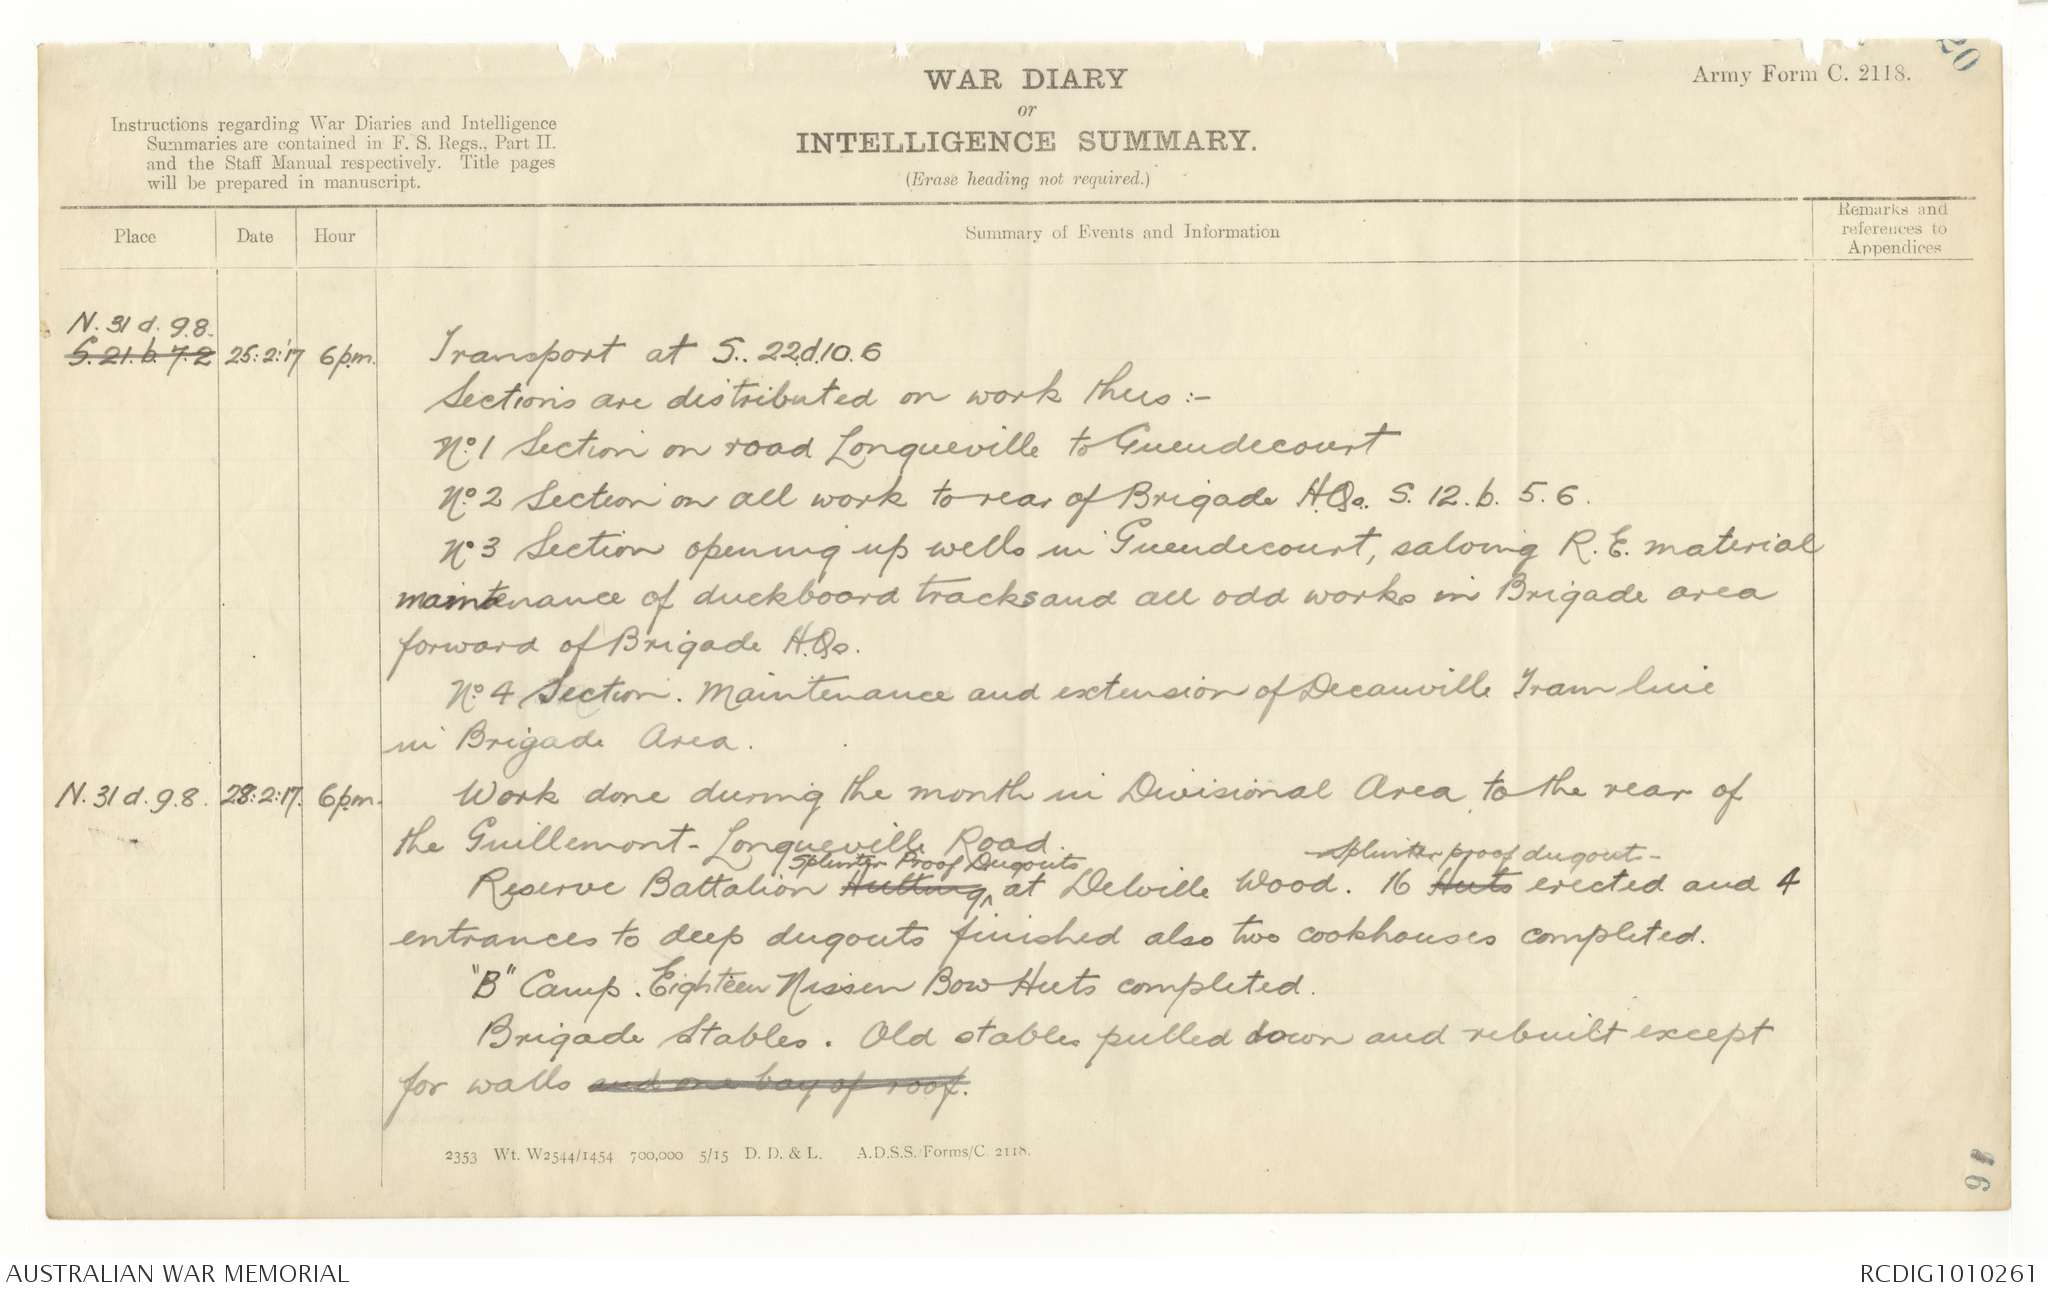 20
WAR DIARY
Army Form C. 2118.
or
INTELLIGENCE SUMMARY.
(Erase heading not required.)
Instructions regarding War Diaries and Intelligence
Summaries are contained in F. S. Regs., Part II.
and the Staff Manual respectively. Title pages
will be prepared in manuscript.
Place Date Hour Summary of Events and Information Remarks and
references to
Appendices
N. 31 d. 9.8.
S. 21. b. 7.2 25:2:17 6 p.m. Transport at S.. 22.d.10.6
Sections are distributed on work thus :-
No. 1 Section on road Longueville to Gueudecourt
No. 2 Section on all work to rear of Brigade H.Qs. S. 12. b. 5. 6.
No 3 Section opening up wells in Gueudecourt, salving R. E. material
maintenance of duckboard tracks and all odd works in Brigade area
forward of Brigade H.Qs.
No. 4 Section. Maintenance and extension of Decauville Tram line
in Brigade Area.
N. 31 d. 9.8. 28:2:17. 6 p.m. Work done during the month in Divisional Area to the rear of
the Guillemont - Longueville Road.
Splinter Proof Dugouts -splinter proof dugouts-
Reserve Battalion Hutting at Delville Wood. 16 Huts erected and 4
entrances to deep dugouts finished also two cookhouses completed.
"B" Camp. Eighteen Nissen Bow Huts completed.
Brigade Stables. Old stables pulled down and rebuilt except
for walls and one bay of roof.
2353 Wt. W2544/1454 700,000 5/15 D. D. & L. A.D.S.S./Forms/C. 2118.
AUSTRALIAN WAR MEMORIAL
RCDIG1010261